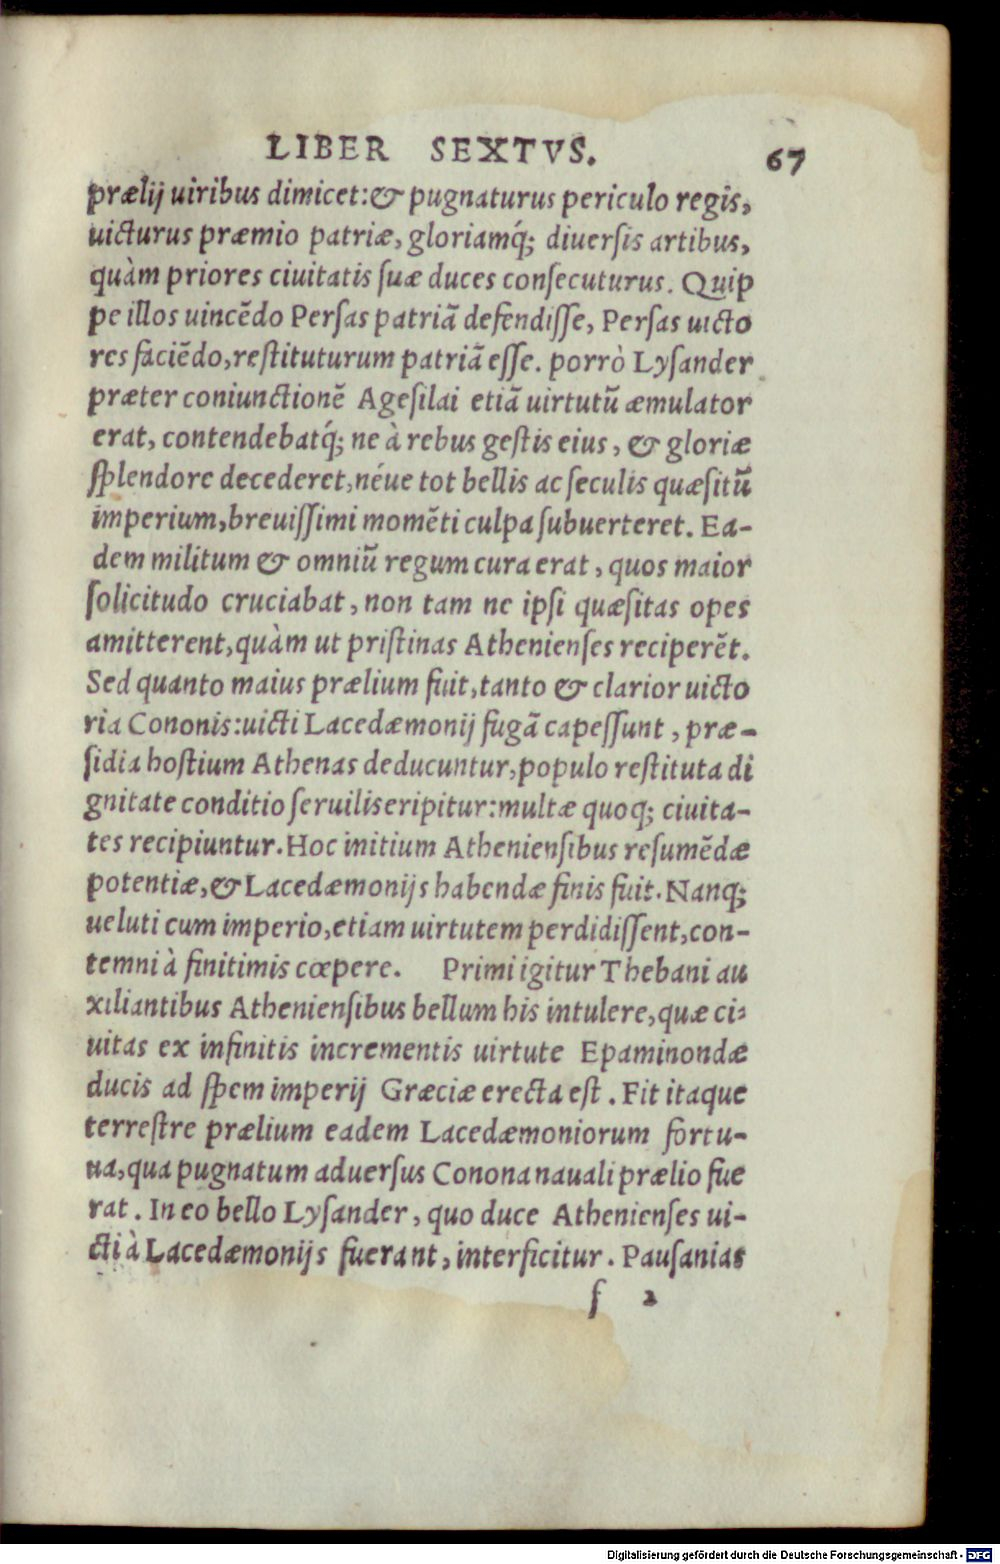 LIBER SEXTVS. 67
prælij uiribus dimicet:& pugnaturus periculo regis,
uicturus præmio patriæ, gloriamq́; diuerſis artibus,
quàm priores ciuitatis ſuæ duces conſecuturus. Quip
pe illos uincēdo Perſas patriā defendiſſe, Perſas uicto
res faciēdo, reſtituturum patriā eſſe. porrò Lyſander
præter coniunctionē Ageſilai etiā uirtutū æmulator
erat, contendebatq́; ne à rebus geſtis eius, & gloriæ
ſplendore decederet, néue tot bellis ac ſeculis quæſitū
imperium, breuiſſimi momēti culpa ſubuerteret. Ea-
dem militum & omniū regum cura erat, quos maior
ſolicitudo cruciabat, non tam ne ipſi quæſitas opes
amitterent, quàm ut priſtinas Athenienſes reciperēt.
Sed quanto maius prælium fuit, tanto & clarior uicto
ria Cononis: uicti Lacedæmonij fugā capeſſunt, præ-
ſidia hoſtium Athenas deducuntur, populo reſtituta di
gnitate conditio ſeruilis eripitur: multæ quoq; ciuita-
tes recipiuntur. Hoc initium Athenienſibus reſumēdæ
potentiæ, & Lacedæmonijs habendæ finis fuit. Nanq;
ueluti cum imperio, etiam uirtutem perdidiſſent, con-
temni à finitimis cœpere. Primi igitur Thebani au
xiliantibus Athenienſibus bellum his intulere, quæ ci-
uitas ex infinitis incrementis uirtute Epaminondæ
ducis ad ſpem imperij Græciæ erecta eſt. Fit itaque
terreſtre prælium eadem Lacedæmoniorum fortu-
na, qua pugnatum aduerſus Conona nauali prælio fue
rat. In eo bello Lyſander, quo duce Athenienſes ui-
cti à Lacedæmonijs fuerant, interficitur. Pauſanias
ſ 2
Digitalisierung gefördert durch die Deutsche Forschungsgemeinschaft - DFG